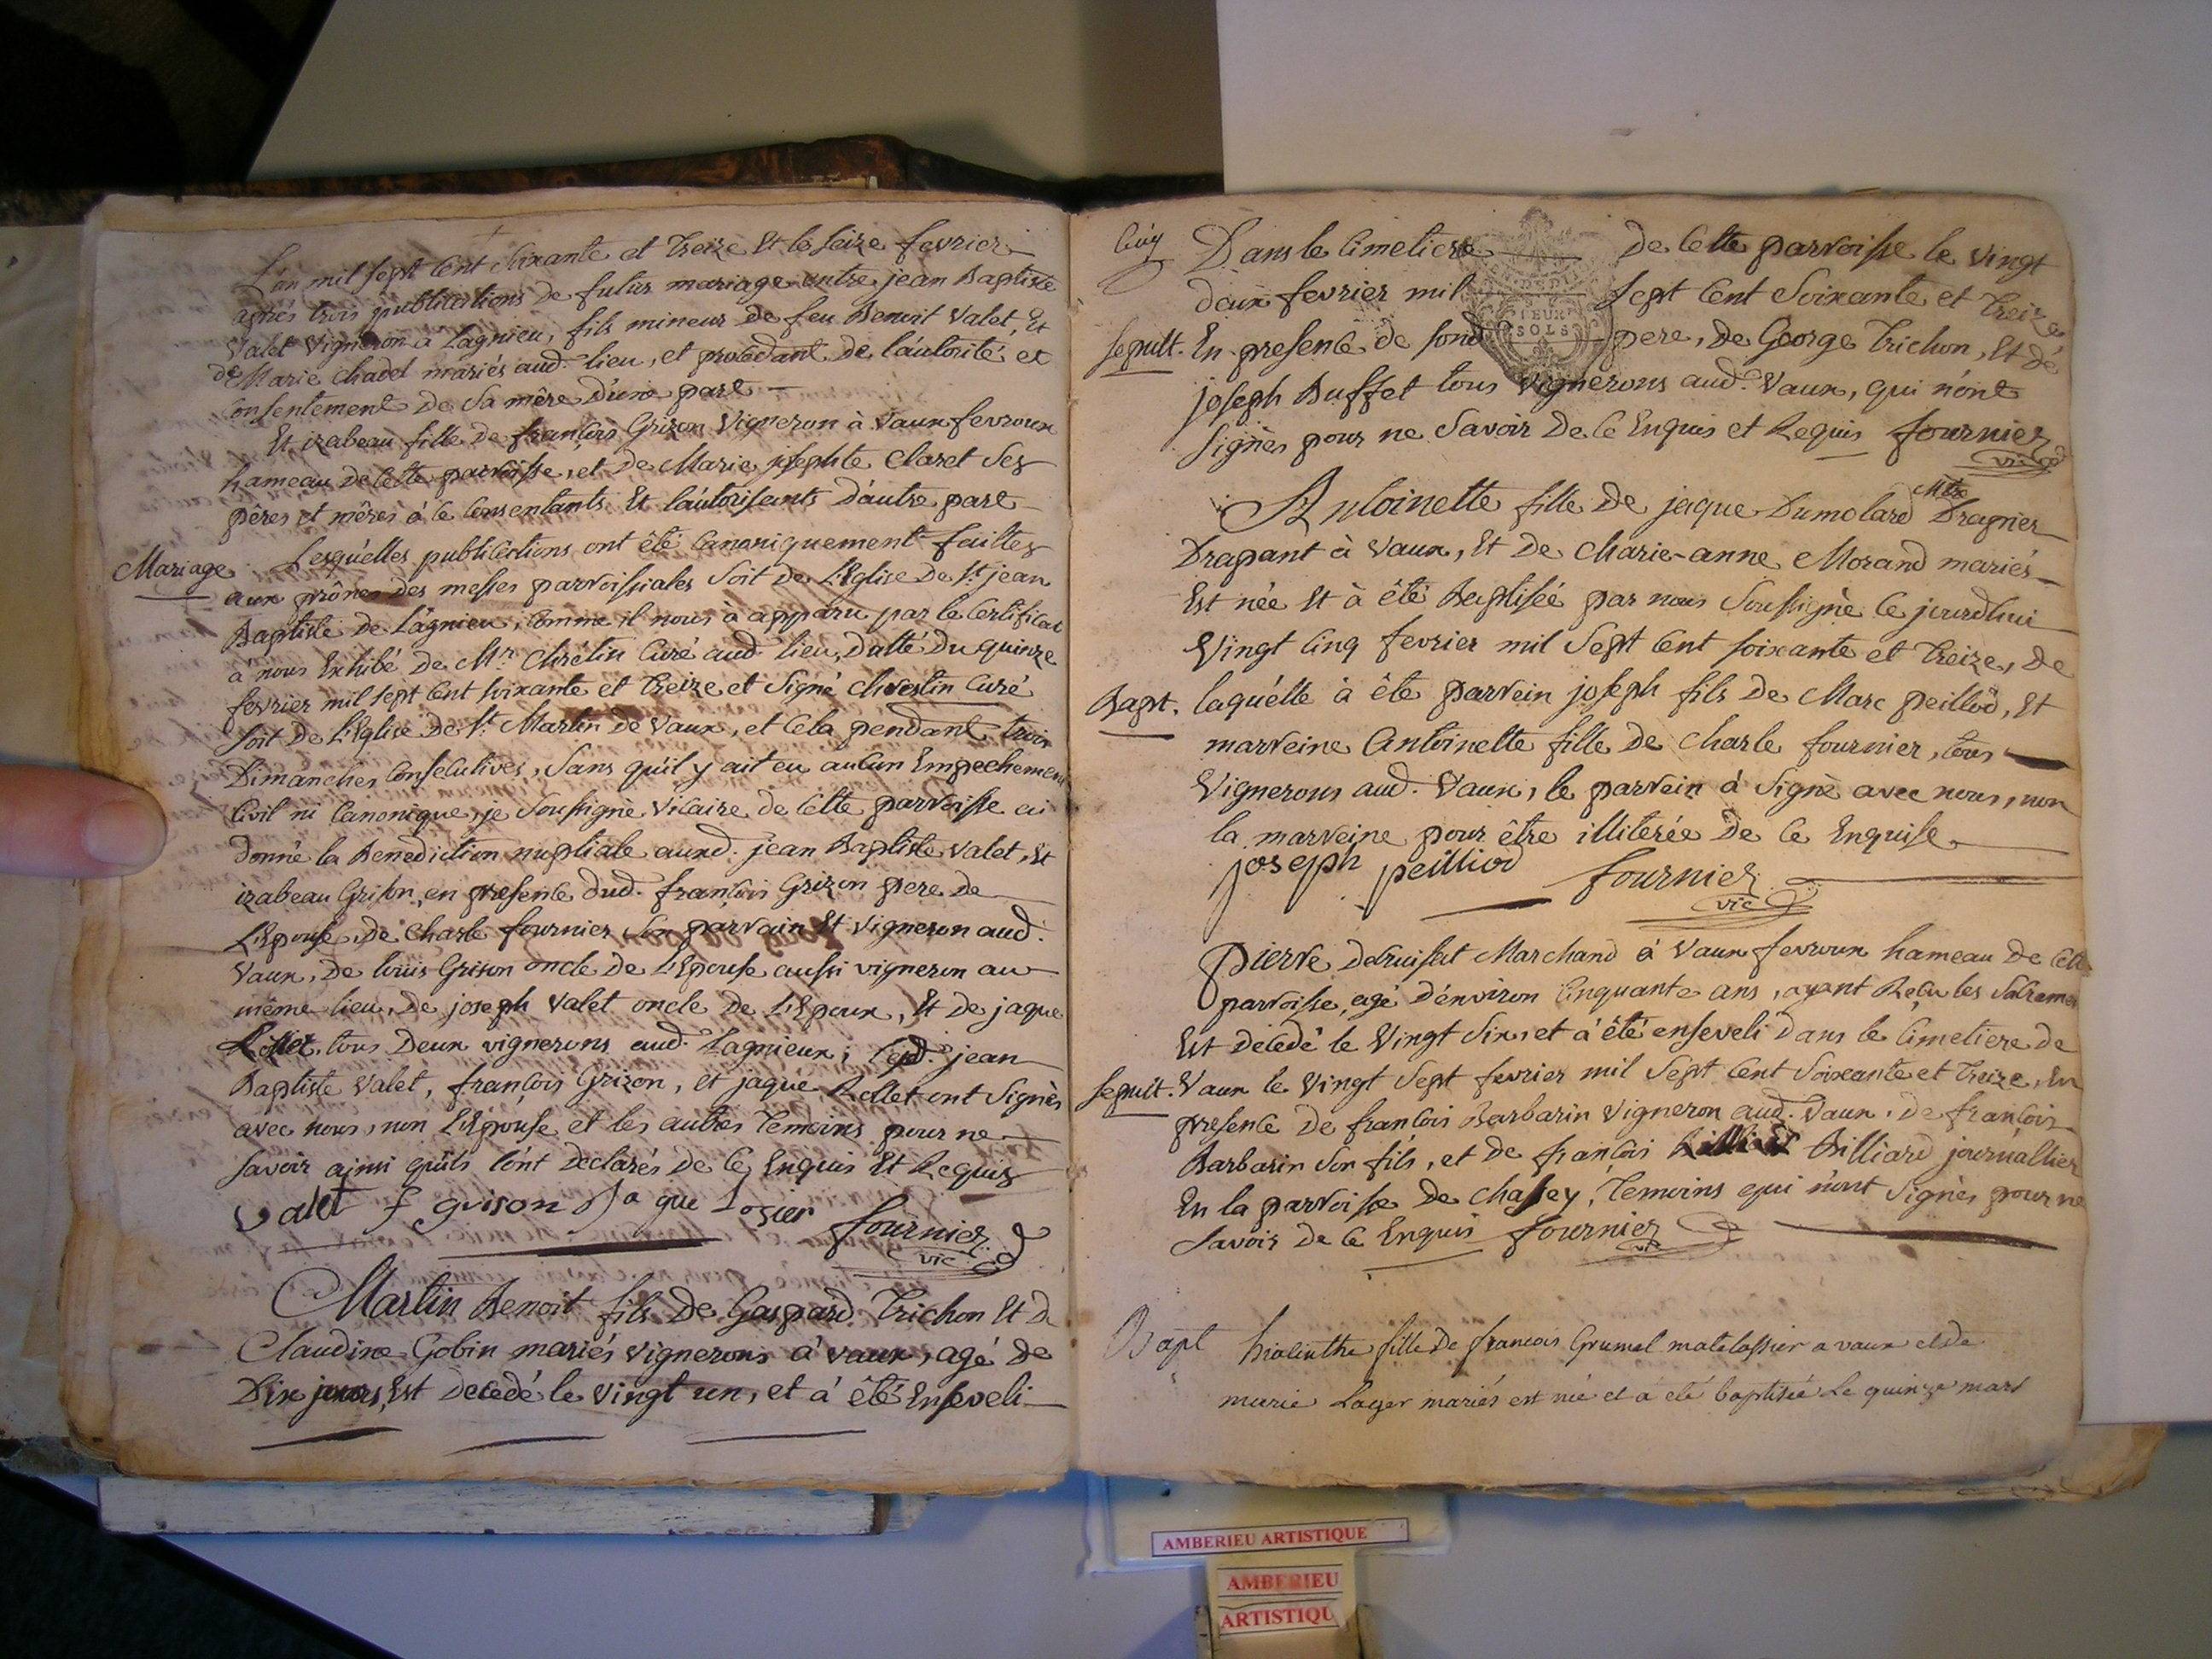 L'an mil sept Cent soixante et treize Et le seize fevrier
après trois publications de futur mariage entre jean Baptiste
Valet Vigneron à Lagnieu, fils mineur de feu Benoit Valet, Et
de Marie Chadel mariés aud. lieu, et procedant de l'autorité et
Consentement de Sa mère d'une part
Et izabeau fille de françois Grizon Vigneron à Vaux fevroux
hameau de Cette parroisse, et de Marie josephte Claret Ses
pères et mères à Ce Consentants Et l'autorisants d'autre part
Mariage
Lesquelles publications ont été Canoniquement faittes
aux prônes des messes parroissiales Soit de L'Eglise de St. jean
Baptiste de Lagnieu, Comme il nous à apparu par le Certificat
à nous Exhibé de Mr. Chrétin Curé aud. lieu, datté du quinze
fevrier mil sept Cent soixante et treize et Signé Chrestin Curé
Soit de L'Eglise de St. Martin de Vaux, et Cela pendant trois
Dimanches Consecutives, Sans qu'il y ait eu aucun Empechement
Civil ni Canonique, je Soussigné Vicaire de Cette parroisse ai
donné la Benediction nuptiale auxd. jean Baptiste Valet, Et
izabeau Grison, en presence dud. françois Grizon pere de
L'Epouse, de Charle fournier Son parrain Et Vigneron aud.
Vaux, de louis Grison oncle de L'Epouse aussi vigneron au
même lieu, de joseph Valet oncle de L'Epoux, Et de jaque
tous Deux vignerons aud. Lagnieux; Lesd. jean
Baptiste Valet, françois Grizon, et jaque Rollet ont Signés
avec nous, non L'Epouse et les autres temoins pour ne
Savoir ainsi qu'ils l'ont declarés de Ce Enquis Et Requis
valet f grison Jaque Rosier fournier
vic
Martin Benoit fils de Gaspard Trichon Et de
Claudine Gobin mariés vignerons à Vaux, agé de
Dix jours, Est decedé le vingt un, et à été Enseveli
Cinq
Dans le Cimetiere de Cette parroisse le vingt
DEUX
SOLS
deux fevrier mil sept Cent Soixante et treize,
Sepult.
En presence de sond. pere, de George Trichon, Et de
joseph Buffet tous vignerons aud. Vaux, qui n'ont
Signès pour ne Savoir de Ce Enquis et Requis fournier
vic
Mtre
Antoinette fille de jaque Dumolard Drapier
Drapant à Vaux, Et de Marie-anne Morand mariés
Est née Et à été Baptisée par nous Soussigné Ce jourdhui
Vingt Cinq fevrier mil Sept Cent soixante et treize, de
Bapt.
laquélle à éte parrein joseph fils de Marc peilliod, Et
marreine Antoinette fille de Charle fournier, tous
Vignerons aud. Vaux, le parrein à Signé avec nous, non
la marreine pour être illiterée de Ce Enquise
joseph peilliod fournier
vic
Pierre Marchand à Vaux fevroux hameau de Cette
parroisse, agé d'environ Cinquante ans, ayant Reçu les Sacremens
Est décedé le Vingt Six, et à été enseveli Dans le Cimetiere de
Sepult.
Vaux le Vingt Sept fevrier mil Sept Cent Soixante et treize, En
presence de françois Barbarin Vigneron aud. Vaux, de françois
Barbarin Son fils, et de françois Billiard journallier
En la parroisse de Chasey, temoins qui n'ont Signès pour ne
Savoir de Ce Enquis fournier
vic
Bapt
hiacinthe fille de francois Grumel matelassier a vaux et de
marie Layer mariés est née et a eté baptisée Le quinze mars
AMBERIEU ARTISTIQUE
AMBERIEU
ARTISTIQU